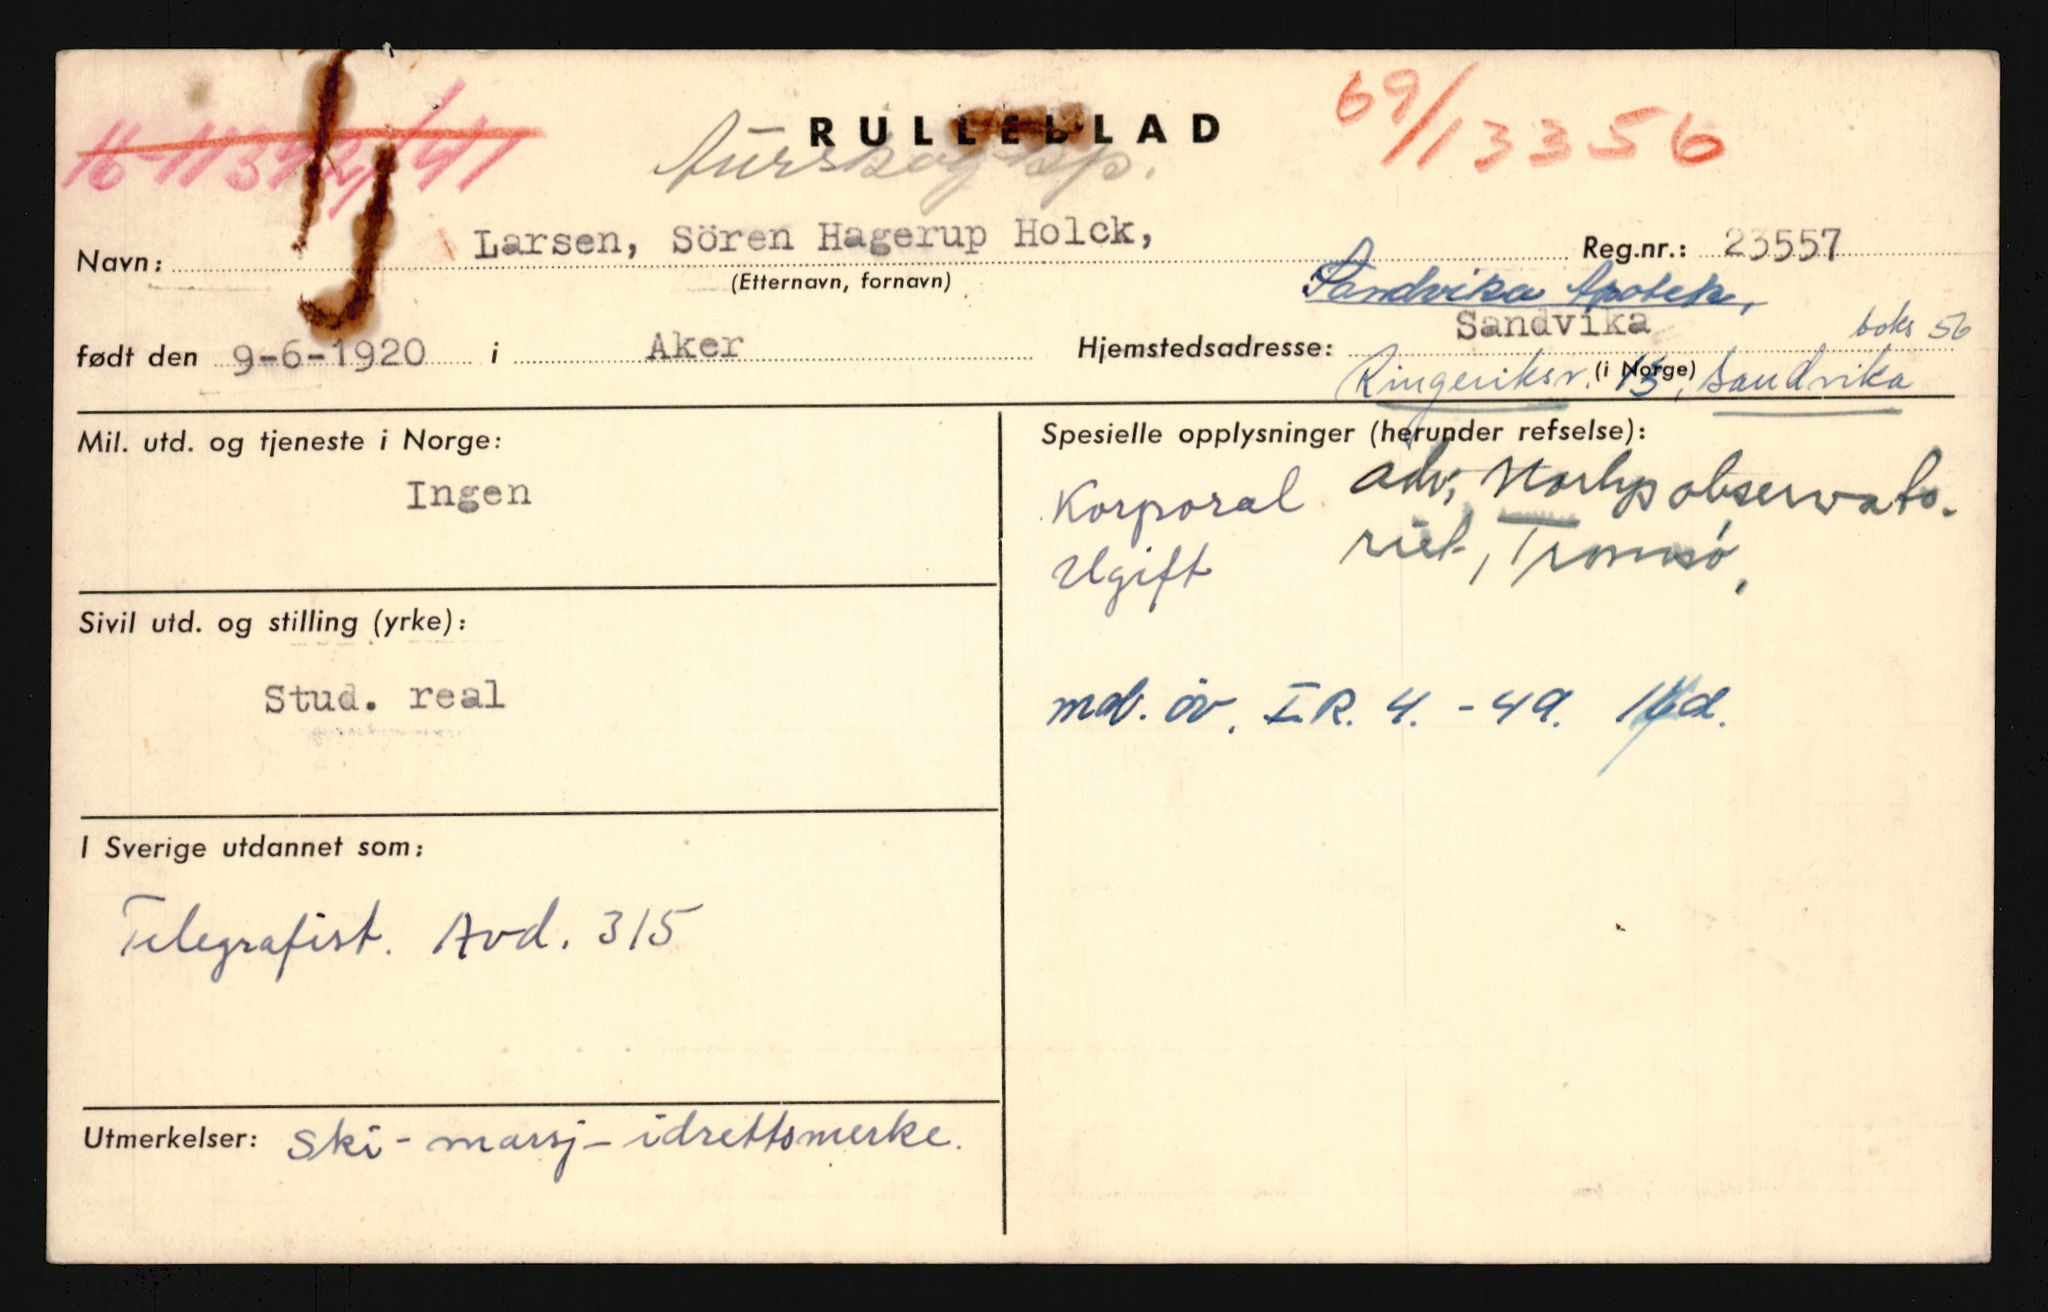 16-11342/41
RULLEBLAD
69/13356
Aurskog kp.
Navn: Larsen, Sören Hagerup Holck, Reg.nr.: 23557
(Etternavn, fornavn)
Sandvika Apotek,
født den 9-6-1920 i Aker Hjemstedsadresse: Sandvika boks 56
(i Norge)
Ringeriksv. 13, Sandvika
Mil. utd. og tjeneste i Norge:
Ingen
Sivil utd. og stilling (yrke):
Stud. real
I Sverige utdannet som:
Telegrafist. Avd. 315
Utmerkelser: Ski- marsj- idrettsmerke.
Spesielle opplysninger (herunder refselse):
Korporal adr, Norlysobservato-
Ugift riet, Tromsø,
mob. øv. I.R. 4. -49. d.